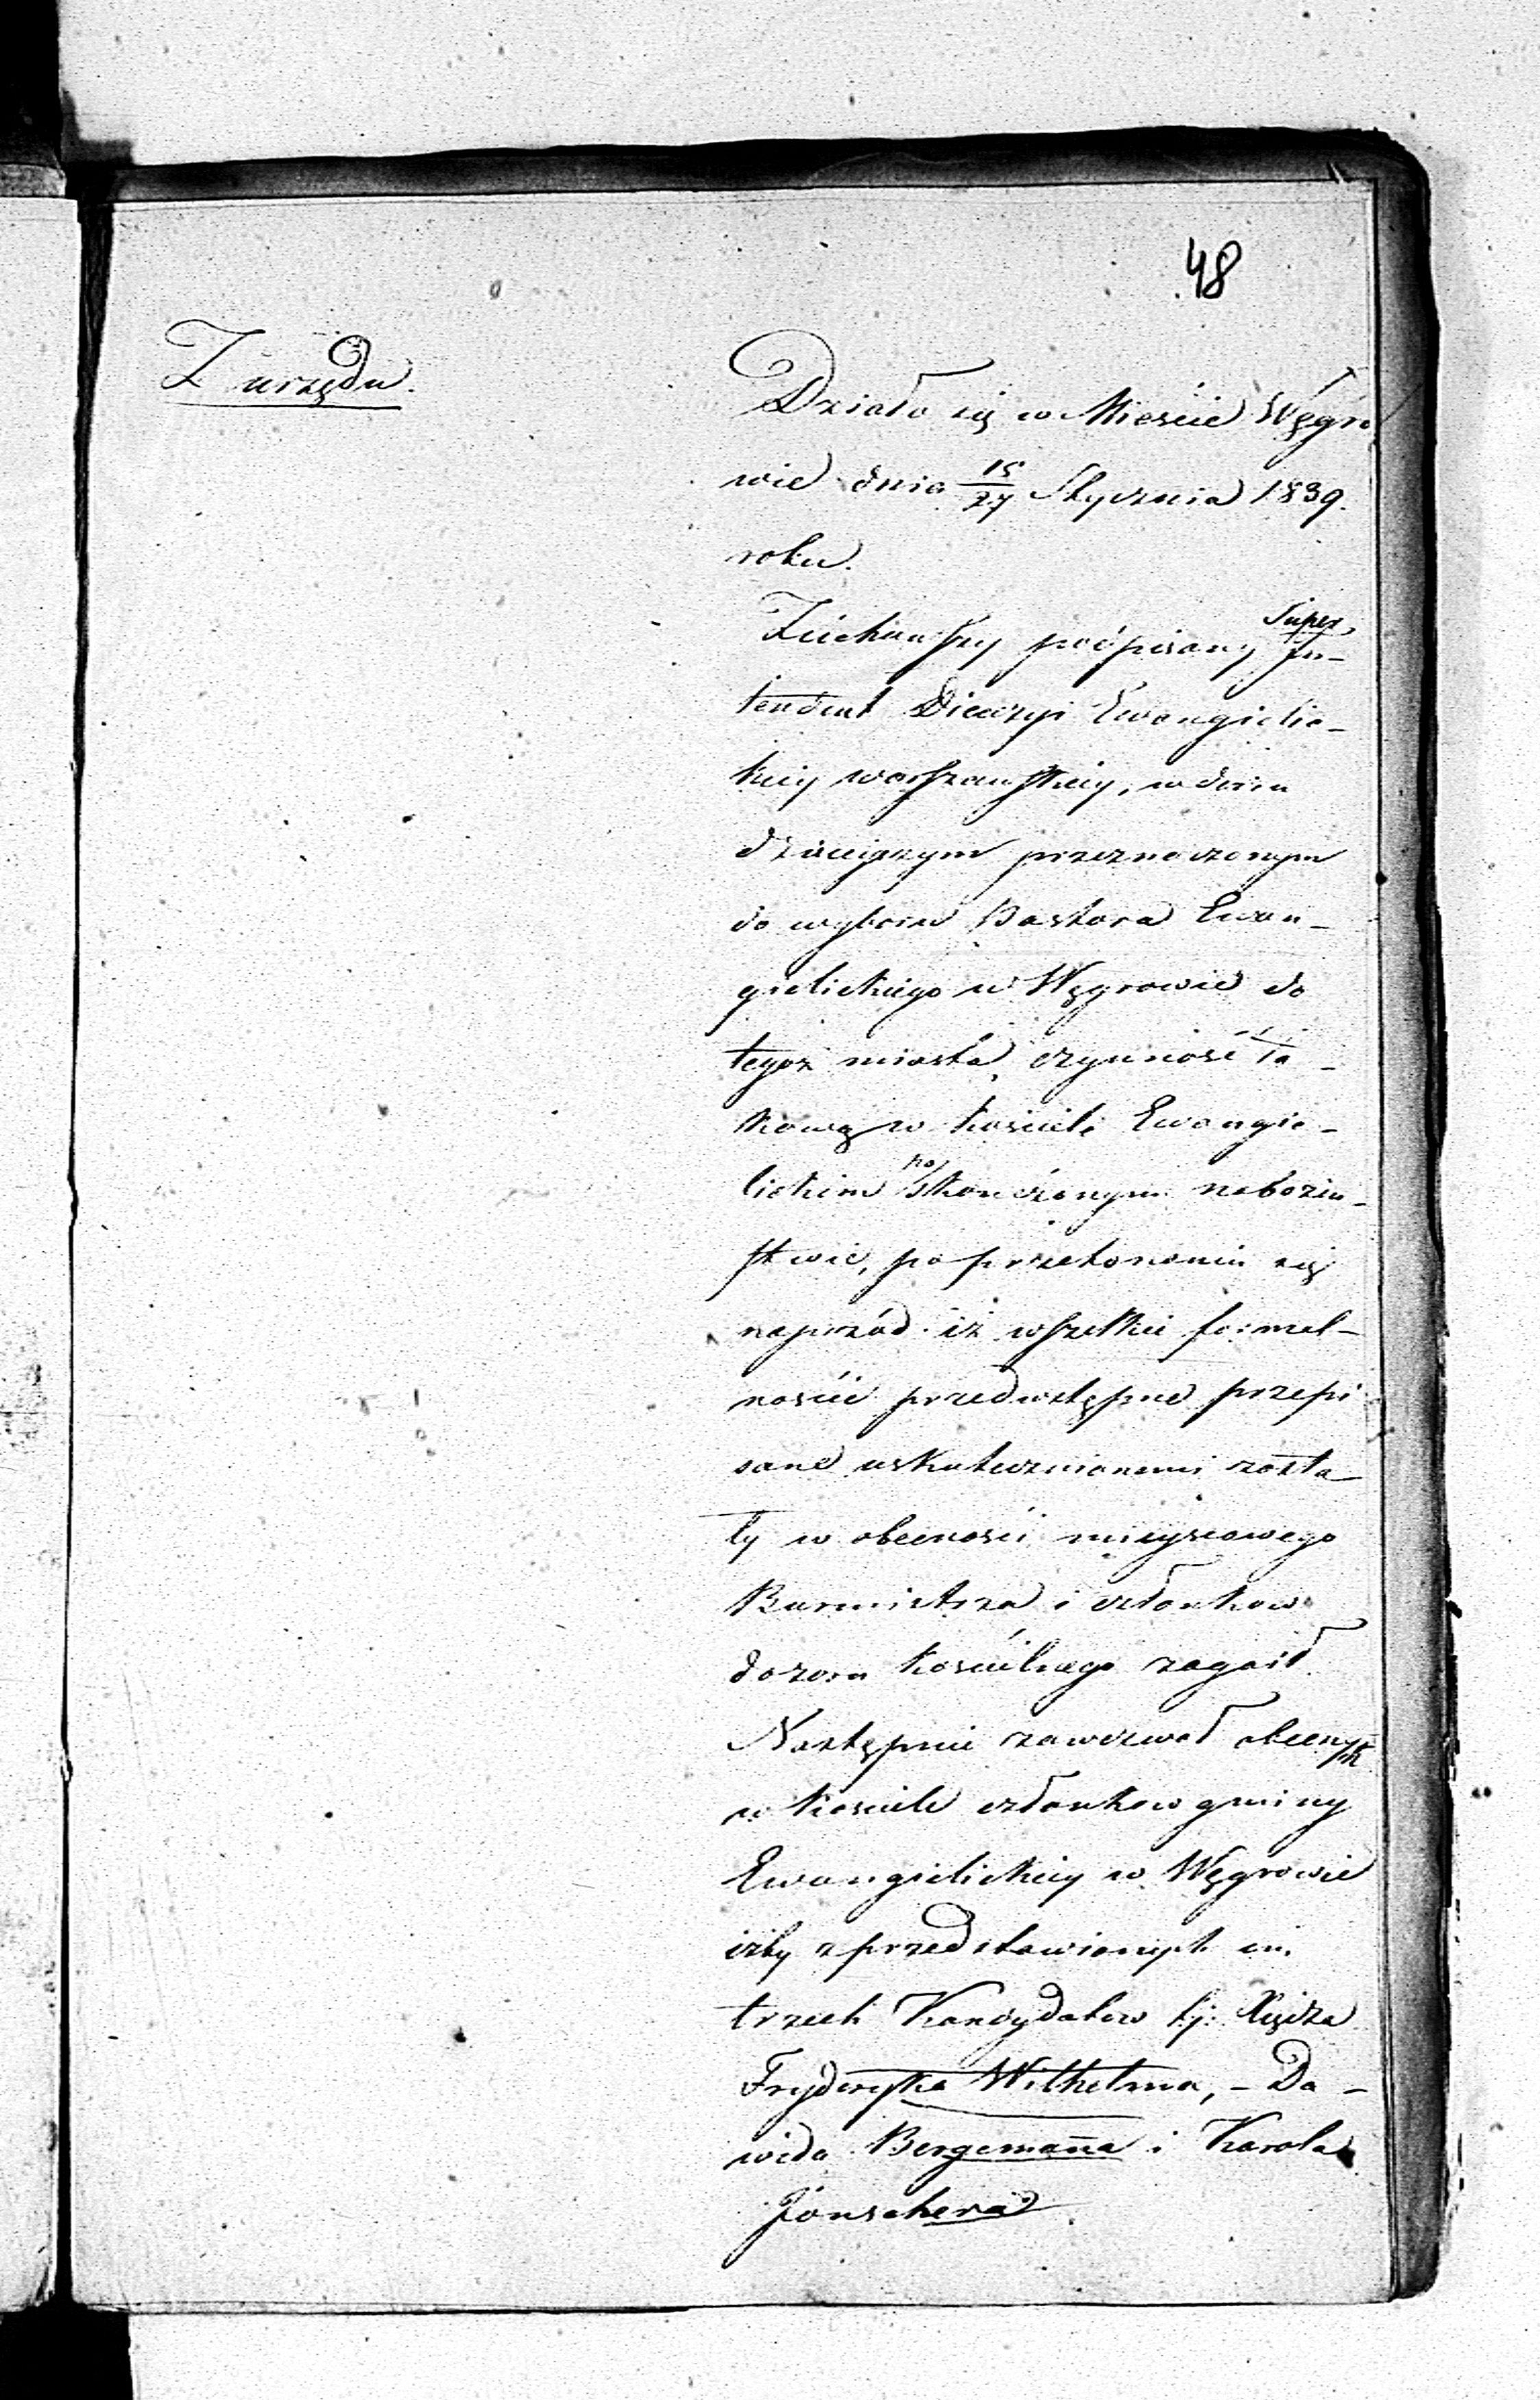 48
Z urzędu.
Działo się w Mieście Węgro
wie dnia 15/27 Stycznia 1839.
roku.
Ziechawszy podpisany Super,
In-
tendent Diecezyi Ewangielic-
kiey warszawskiey, w dniu
dzisieyszym przeznaczonym
do wyboru Pastora Ewan-
gielickiego w Węgrowie do
tegoż miasta, czynność ta-
kową w kościele Ewangie-
lickim po skończonym nabożeń-
stwie, po przekonaniu się
naprzód iż wszelkie formal-
noście przedwstępne przepi
sane uskutecznionemi zosta-
ły w obecności mieyscowego
Burmistrza i członkow
dozoru kościelnego zagaił.
Następnie zawezwał obecnych
w kościele członkow gminy
Ewangielickiey w Węgrowie
iżby z przedstawionych im
trzech Kandydatow t.j. Xiędza
Fryderyka Wilhelma, - Da-
wida Bergemana i Karola
Jonschera.